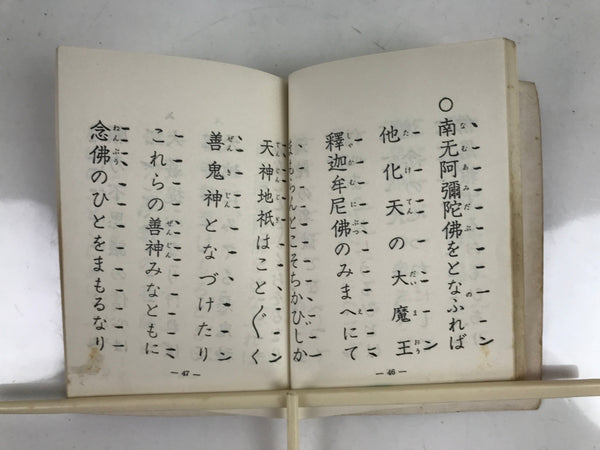 ○南无阿彌陀佛をとなふれば
他化天の大魔王
釋迦牟尼佛のみまへにて
まもらんとこそちかひしか
— 46 —
天神地祇はことぐく
善鬼神となづけたり
これらの善神みなともに
念佛のひとをまもるなり
— 47 —